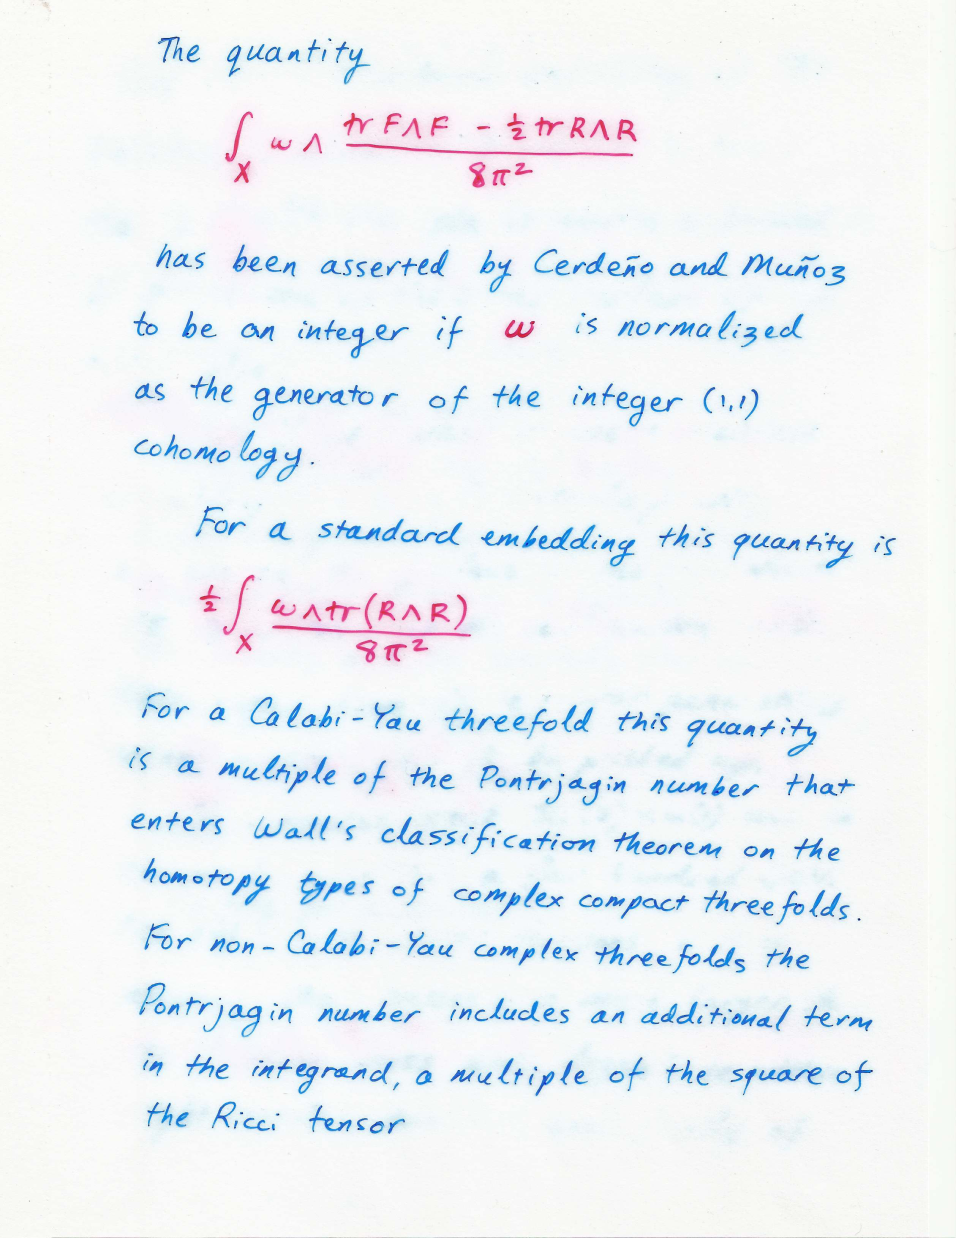 The quantity
∫_X ω ∧ (tr F∧F - ½ tr R∧R) / 8π²
has been asserted by Cerdeño and Muñoz
to be an integer if ω is normalized
as the generator of the integer (1,1)
cohomology.
For a standard embedding this quantity is
½ ∫_X ω∧tr(R∧R) / 8π²
For a Calabi-Yau threefold this quantity
is a multiple of the Pontrjagin number that
enters Wall's classification theorem on the
homotopy types of complex compact threefolds.
For non-Calabi-Yau complex threefolds the
Pontrjagin number includes an additional term
in the integrand, a multiple of the square of
the Ricci tensor